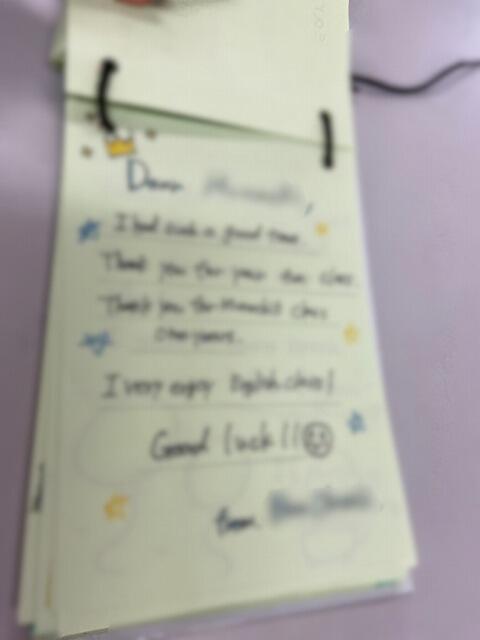 Dear
I had such a good time.
Thank you for your fun class.
Thank you for class
I very enjoy English class!
Good luck!!
from.